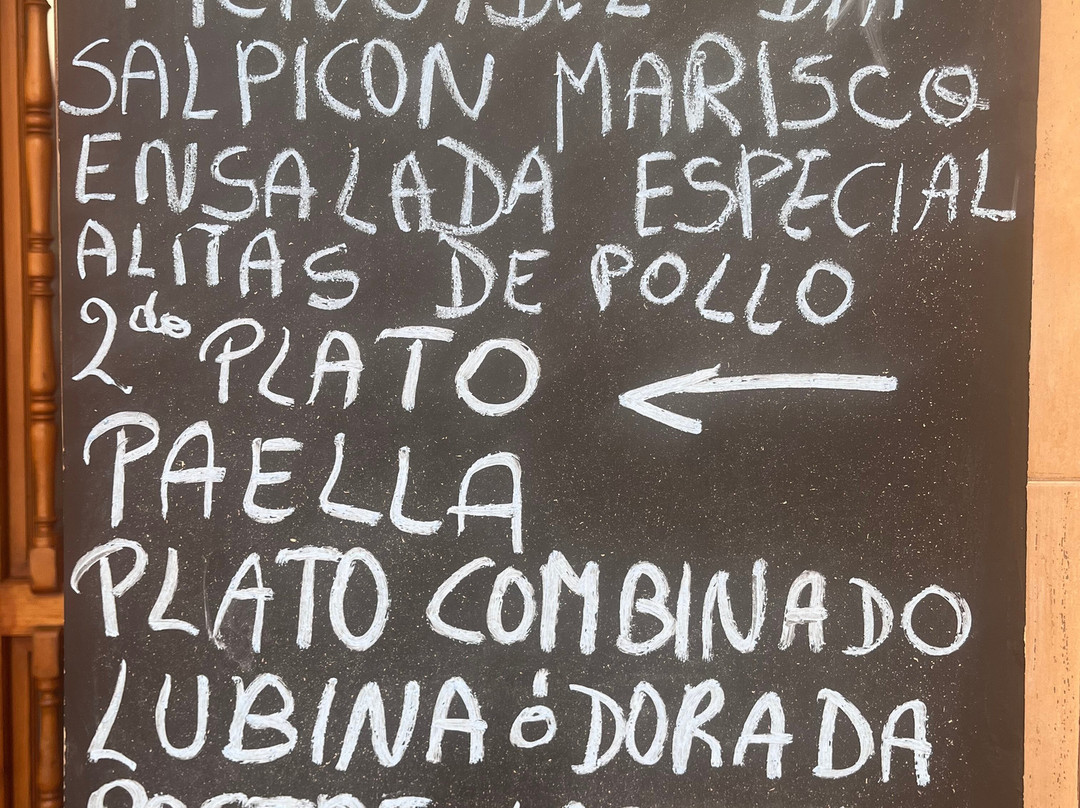 SALPICON MARISCO
ENSALADA ESPECIAL
ALITAS DE POLLO
2do PLATO
PAELLA
PLATO COMBINADO
LUBINA ó DORADA